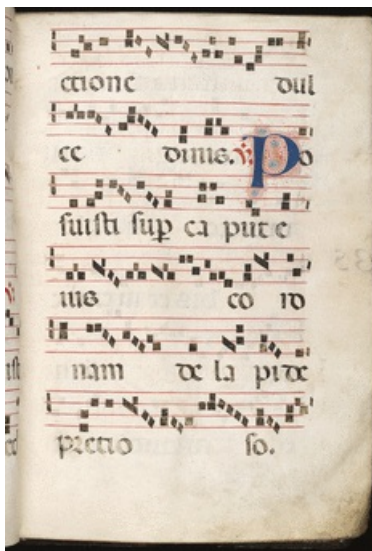 ctione dul
ce dinis. ℣. Po
suisti sup ca put e
ius co ro
nam de la pide
pretio so.